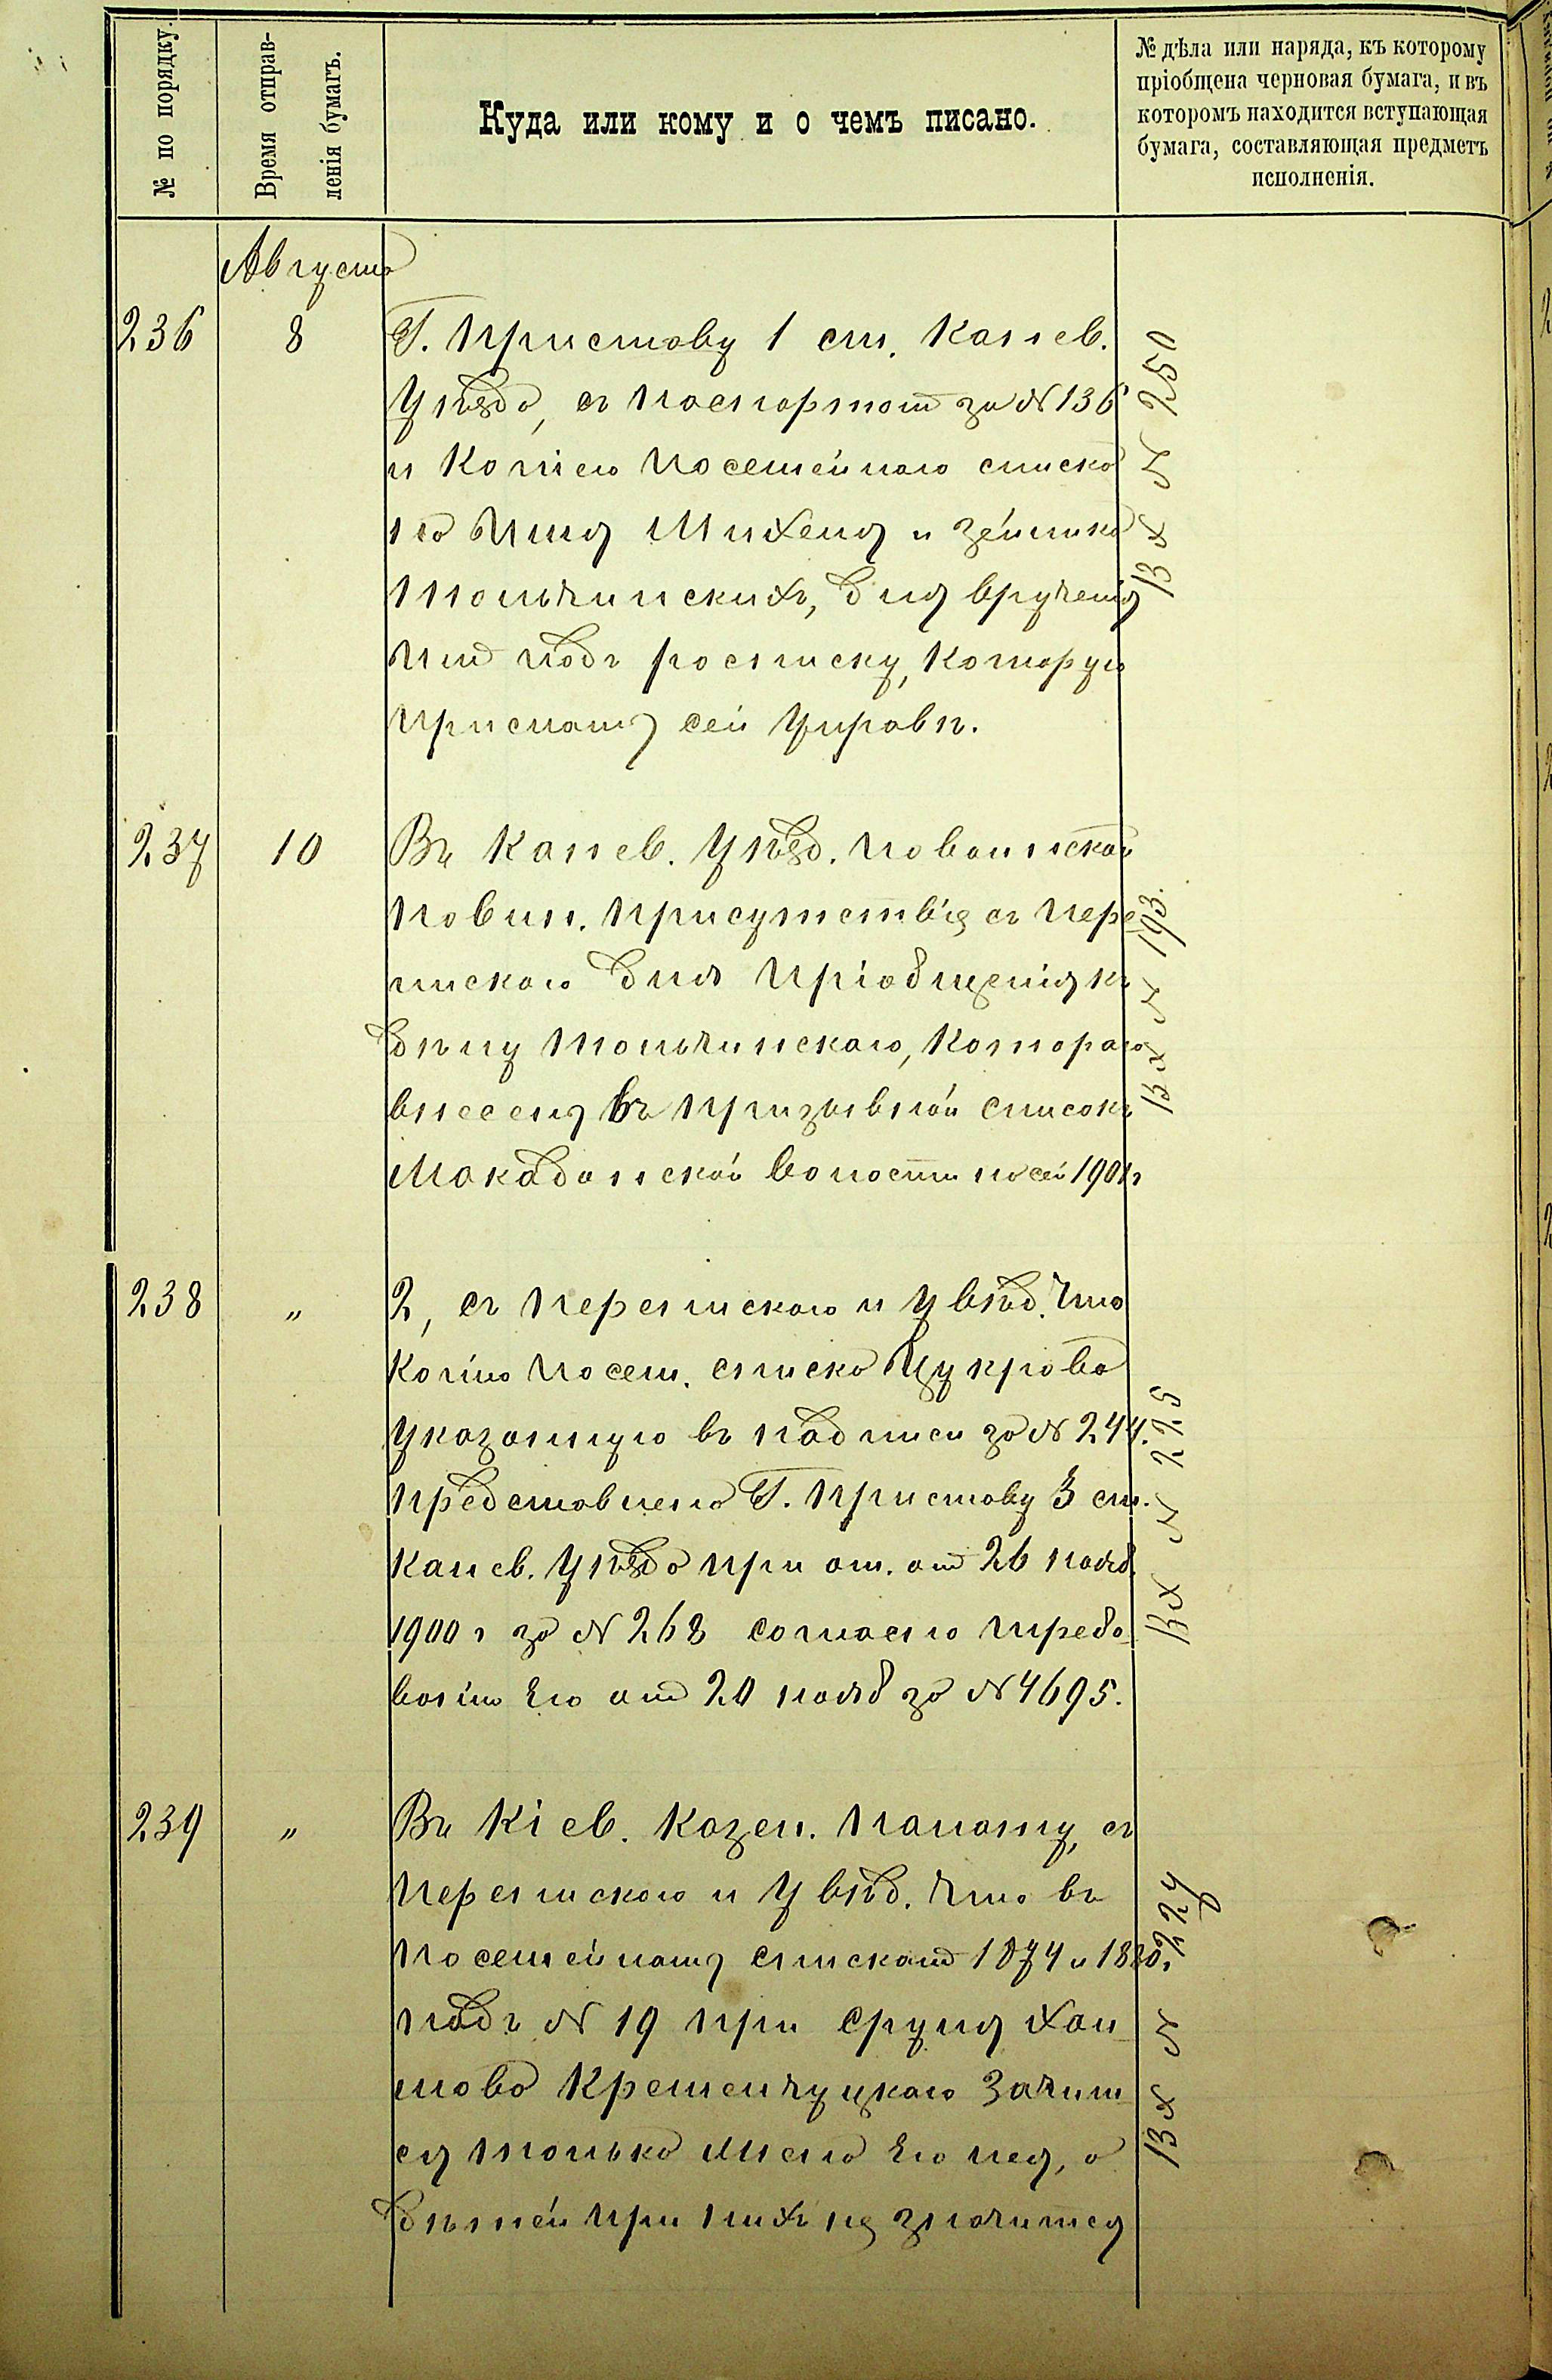 № по порядку.
Время отправ-
ленія бумагъ.
Куда или кому и о чемъ писано.
№ дѣла или наряда, къ которому
пріобщена черновая бумага, и въ
которомъ находится вступающая
бумага, составляющая предметъ
исполненія.
Августа
236 8 Г. Приставу 1 ст. Канев.
Уѣзда, съ паспортом за № 136
и копіею посемейнаго списка
на имя Михеля и
Тольчинскихъ, для врученія
им подъ росписку, которую
прислать сей Управѣ.
Вх № 250
237 10 Въ Канев. Уѣзд. по воинской
повин. присутствіе съ пере
пискою для пріобщенія къ
дѣлу Тольчинскаго, котораго
внесена въ призывной списокъ
волости на сей 1901 г
Вх № 193.
238 „ 2, съ перепискою и увѣд. что
копія посем. списка Цукрова
указанную въ надписи за № 244.
представлена Г. Приставу 3 ст.
Канев. Уѣзда при от. от 26 нояб.
1900 г за № 268 согласно требо
ванію его от 20 нояб за № 4695.
Вх № 225
239 „ Въ Кіев. Казен. Палату, съ
перепискою и увѣд. что въ
посемейном спискам 1874 и
подъ № 19 при Сруля Хаи
мова Кременчуцкаго
ся только его нея, а
дѣтей при них не значится
Вх № 227